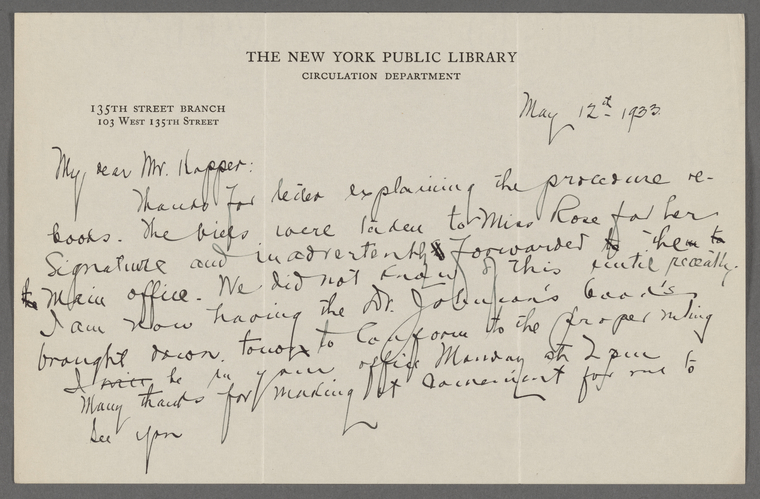 THE NEW YORK PUBLIC LIBRARY
CIRCULATION DEPARTMENT
135TH STREET BRANCH
103 WEST 135TH STREET
May 12th 1933.
My dear Mr. Kopper:
Thanks for letter explaining the procedure re-
books. The bills were taken to Miss Rose for her
signature and inadvertently forwarded to them to
to Main office. We did not know of this until recently.
I am now having the Dr. Johnson's books
brought down, to conform to the proper ruling
I will be in your office Monday at 2 pm
Many thanks for making it convenient for me to
see you